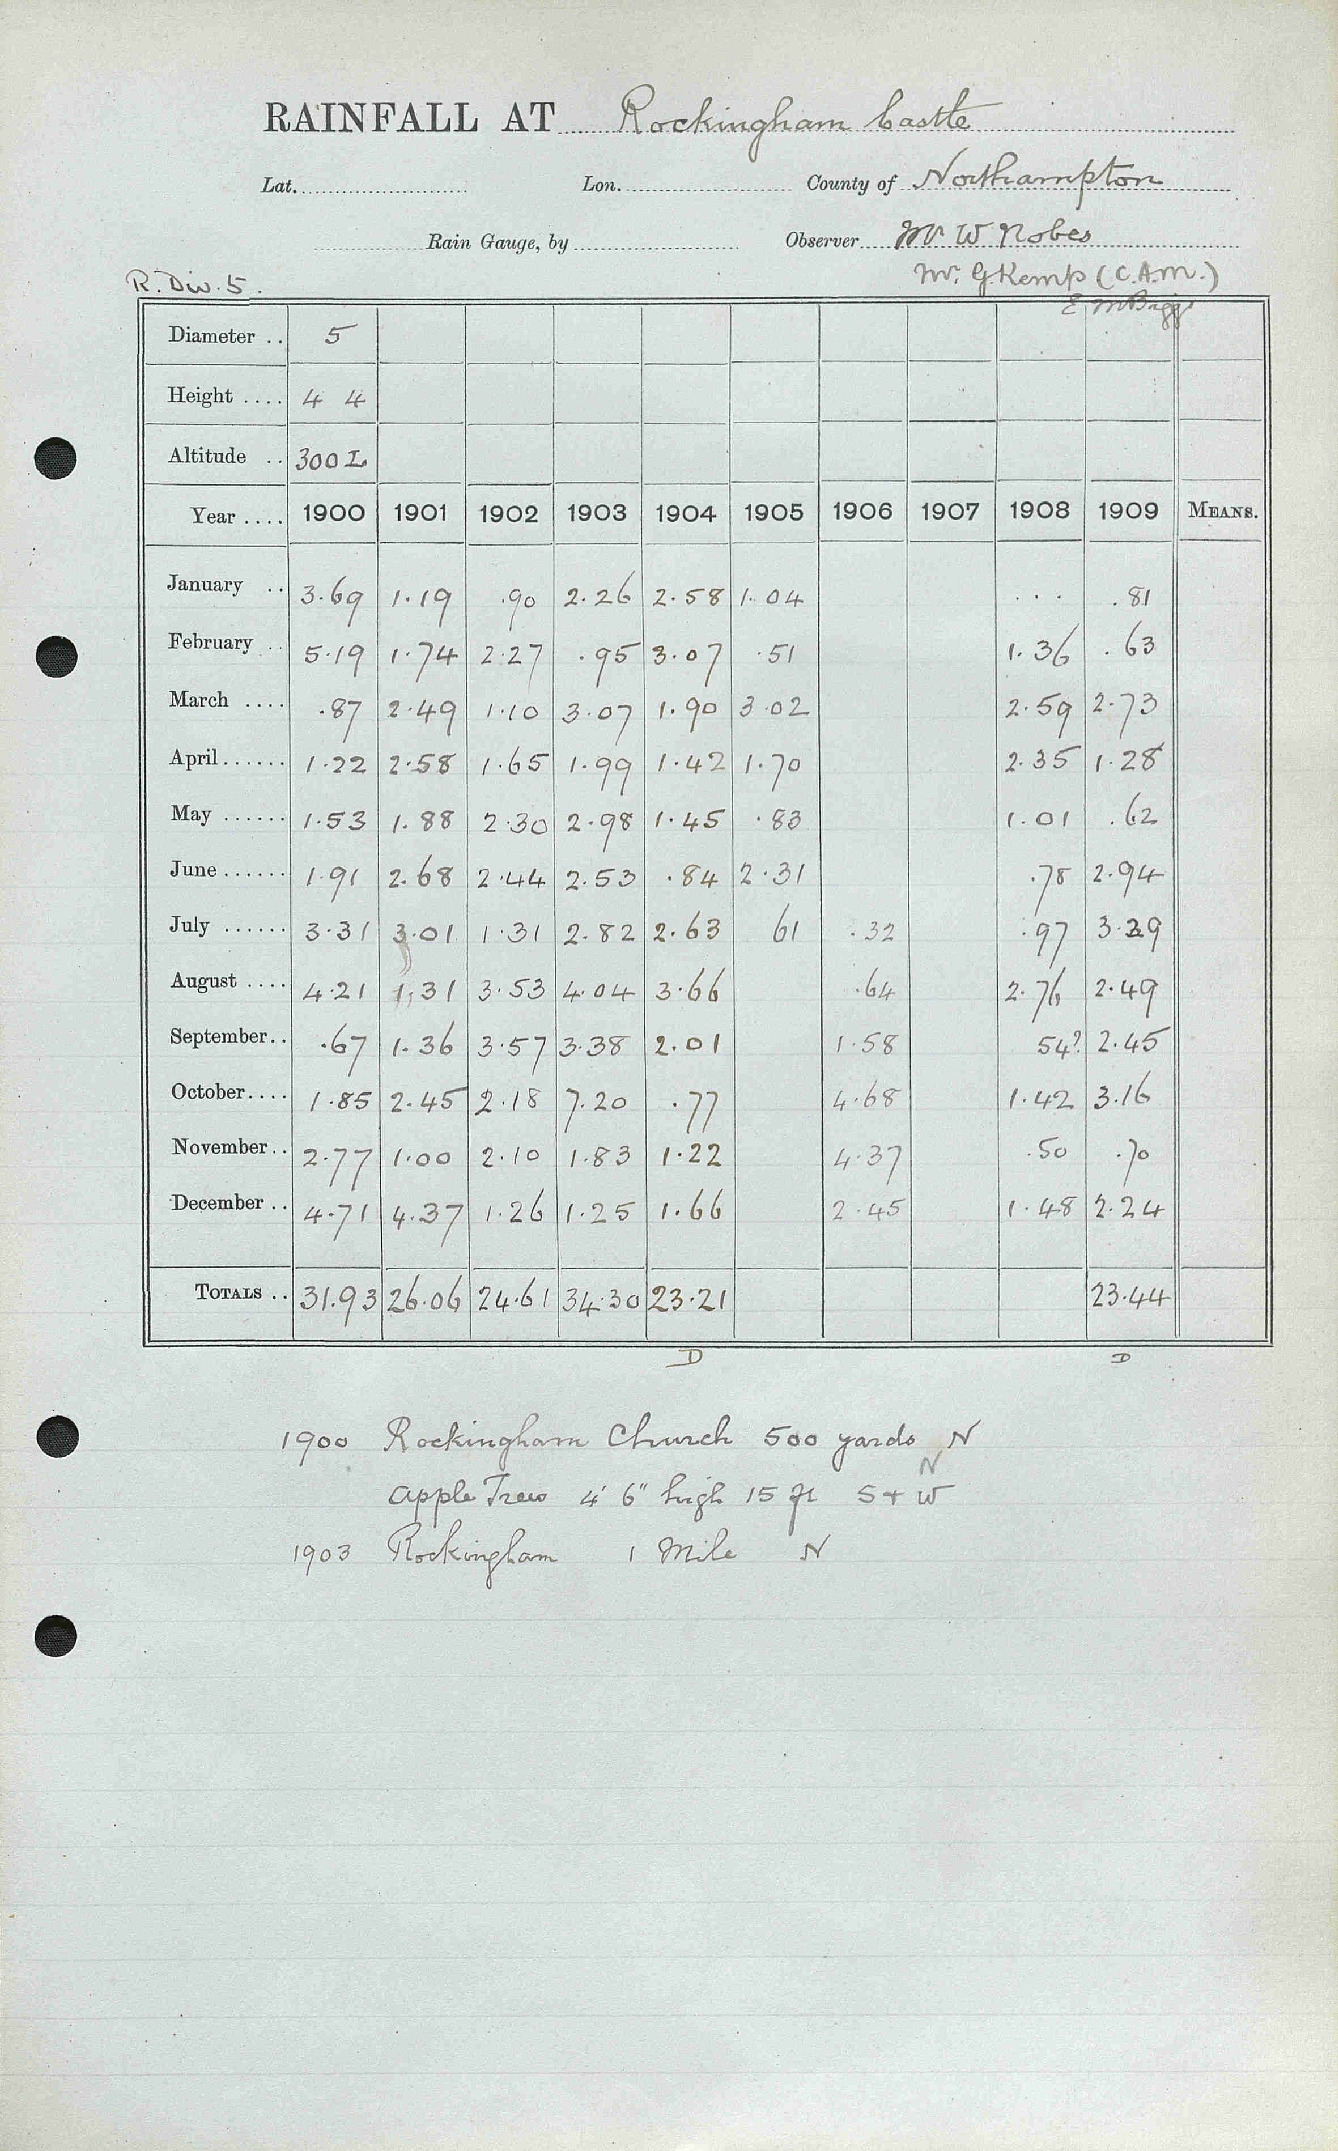 RAINFALL AT Rockingham Castle
Lat. Lon. County of Northampton
Rain Gauge, by Observer Mr W Nobes
R. Div. 5. Mr. G Kemp (C.A.M.)
Diameter .. 5
Height .... 4 4
Altitude .. 300 L
Year .... 1900 1901 1902 1903 1904 1905 1906 1907 1908 1909 MEANS.
January .. 3.69 1.19 .90 2.26 2.58 1.04 ... .81
February .. 5.19 1.74 2.27 .95 3.07 .51 1.36 .63
March .... .87 2.49 1.10 3.07 1.90 3.02 2.59 2.73
April...... 1.22 2.58 1.65 1.99 1.42 1.70 2.35 1.28
May ...... 1.53 1.88 2.30 2.98 1.45 .83 1.01 .62
June ...... 1.91 2.68 2.44 2.53 .84 2.31 .78 2.94
July ...... 3.31 3.01 1.31 2.82 2.63 61 .32 .97 3.29
August .... 4.21 1.31 3.53 4.04 3.66 .64 2.76 2.49
September.. .67 1.36 3.57 3.38 2.01 1.58 54? 2.45
October.... 1.85 2.45 2.18 7.20 .77 4.68 1.42 3.16
November.. 2.77 1.00 2.10 1.83 1.22 4.37 .50 .70
December .. 4.71 4.37 1.26 1.25 1.66 2.45 1.48 2.24
TOTALS .. 31.93 26.06 24.61 34.30 23.21 23.44
D D
1900 Rockingham Church 500 yards N
N
Apple Trees 4' 6" high 15 ft S + W
1903 Rockingham 1 Mile N